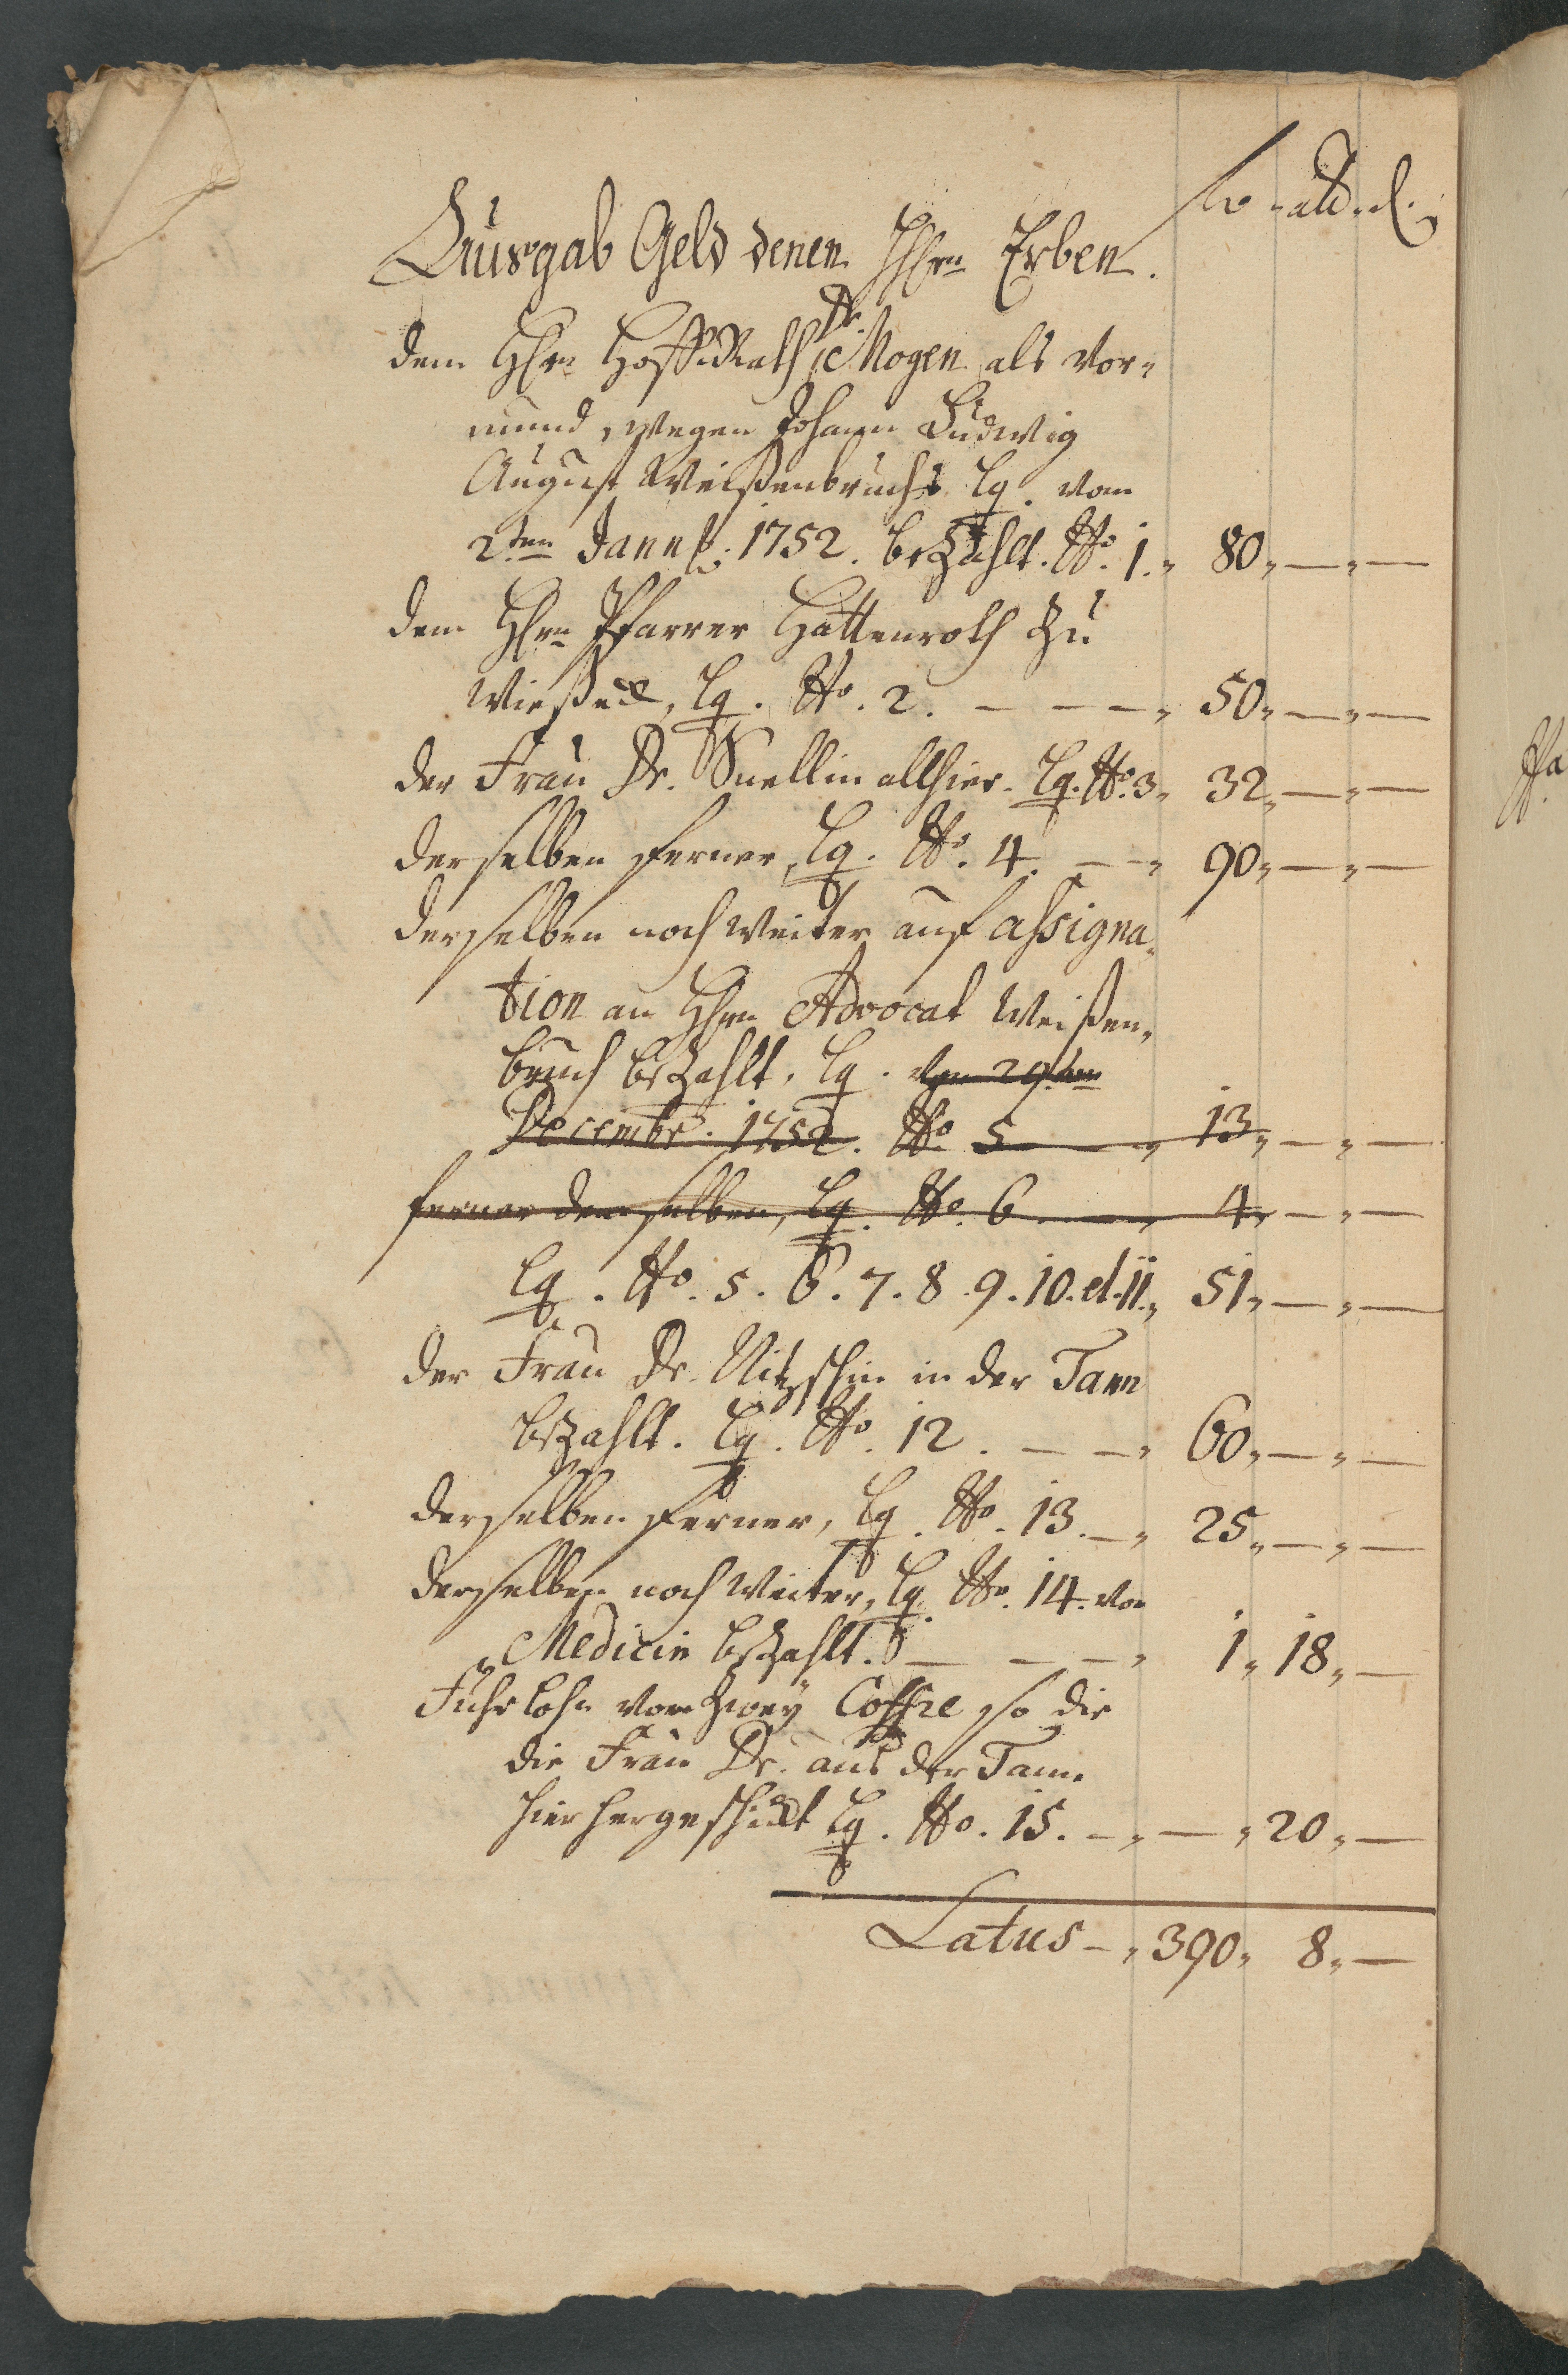 fl. alb. d.
Ausgab Geld denen HHrn Erben.
Dr.
dem Hrn HoffRath Mogen als Vor-
mund, wegen Johann Ludwig
August Weißenbruchs, lq. vom
2ten Jan. 1752. bezahlt. No. 1. „ 80„ — „ —
dem Hrn Pfarrer Hattenroth zu
Wießeck, lq. No. 2. — — — „ 50„ — „ —
der Frau Dr. Snellin allhier. lq. No. 3„ 32„ — „ —
derselben ferner, lq. No. 4. — — „ 90„ — „ —
derselben noch weiter auf assigna-
tion an Hrn Advocat Weißen-
bruch bezahlt. lq. vom 29ten
Decembr. 1752. No. 5 — „ 13„ — „ —
ferner demselben, lq. No. 6 — „ 4„ — „ —
lq. No. 5. 6. 7. 8. 9. 10. et. 11.„ 51„ — „ —
der Frau Dr. Nitzschin in der Tann
bezahlt. lq. No. 12. — — „ 60„ — „ —
derselben ferner, lq. No. 13. — „ 25„ — „ —
derselben noch weiter, lq. No. 14. vor
Medicin bezahlt. — — — „ 1„ 18„ —
Fuhrlohn von zwey Coffre so die
die Frau Dr. aus der Tann
hierhergeschickt lq. No. 15. — „ — „ 20„ —
Latus — „ 390„ 8„ —